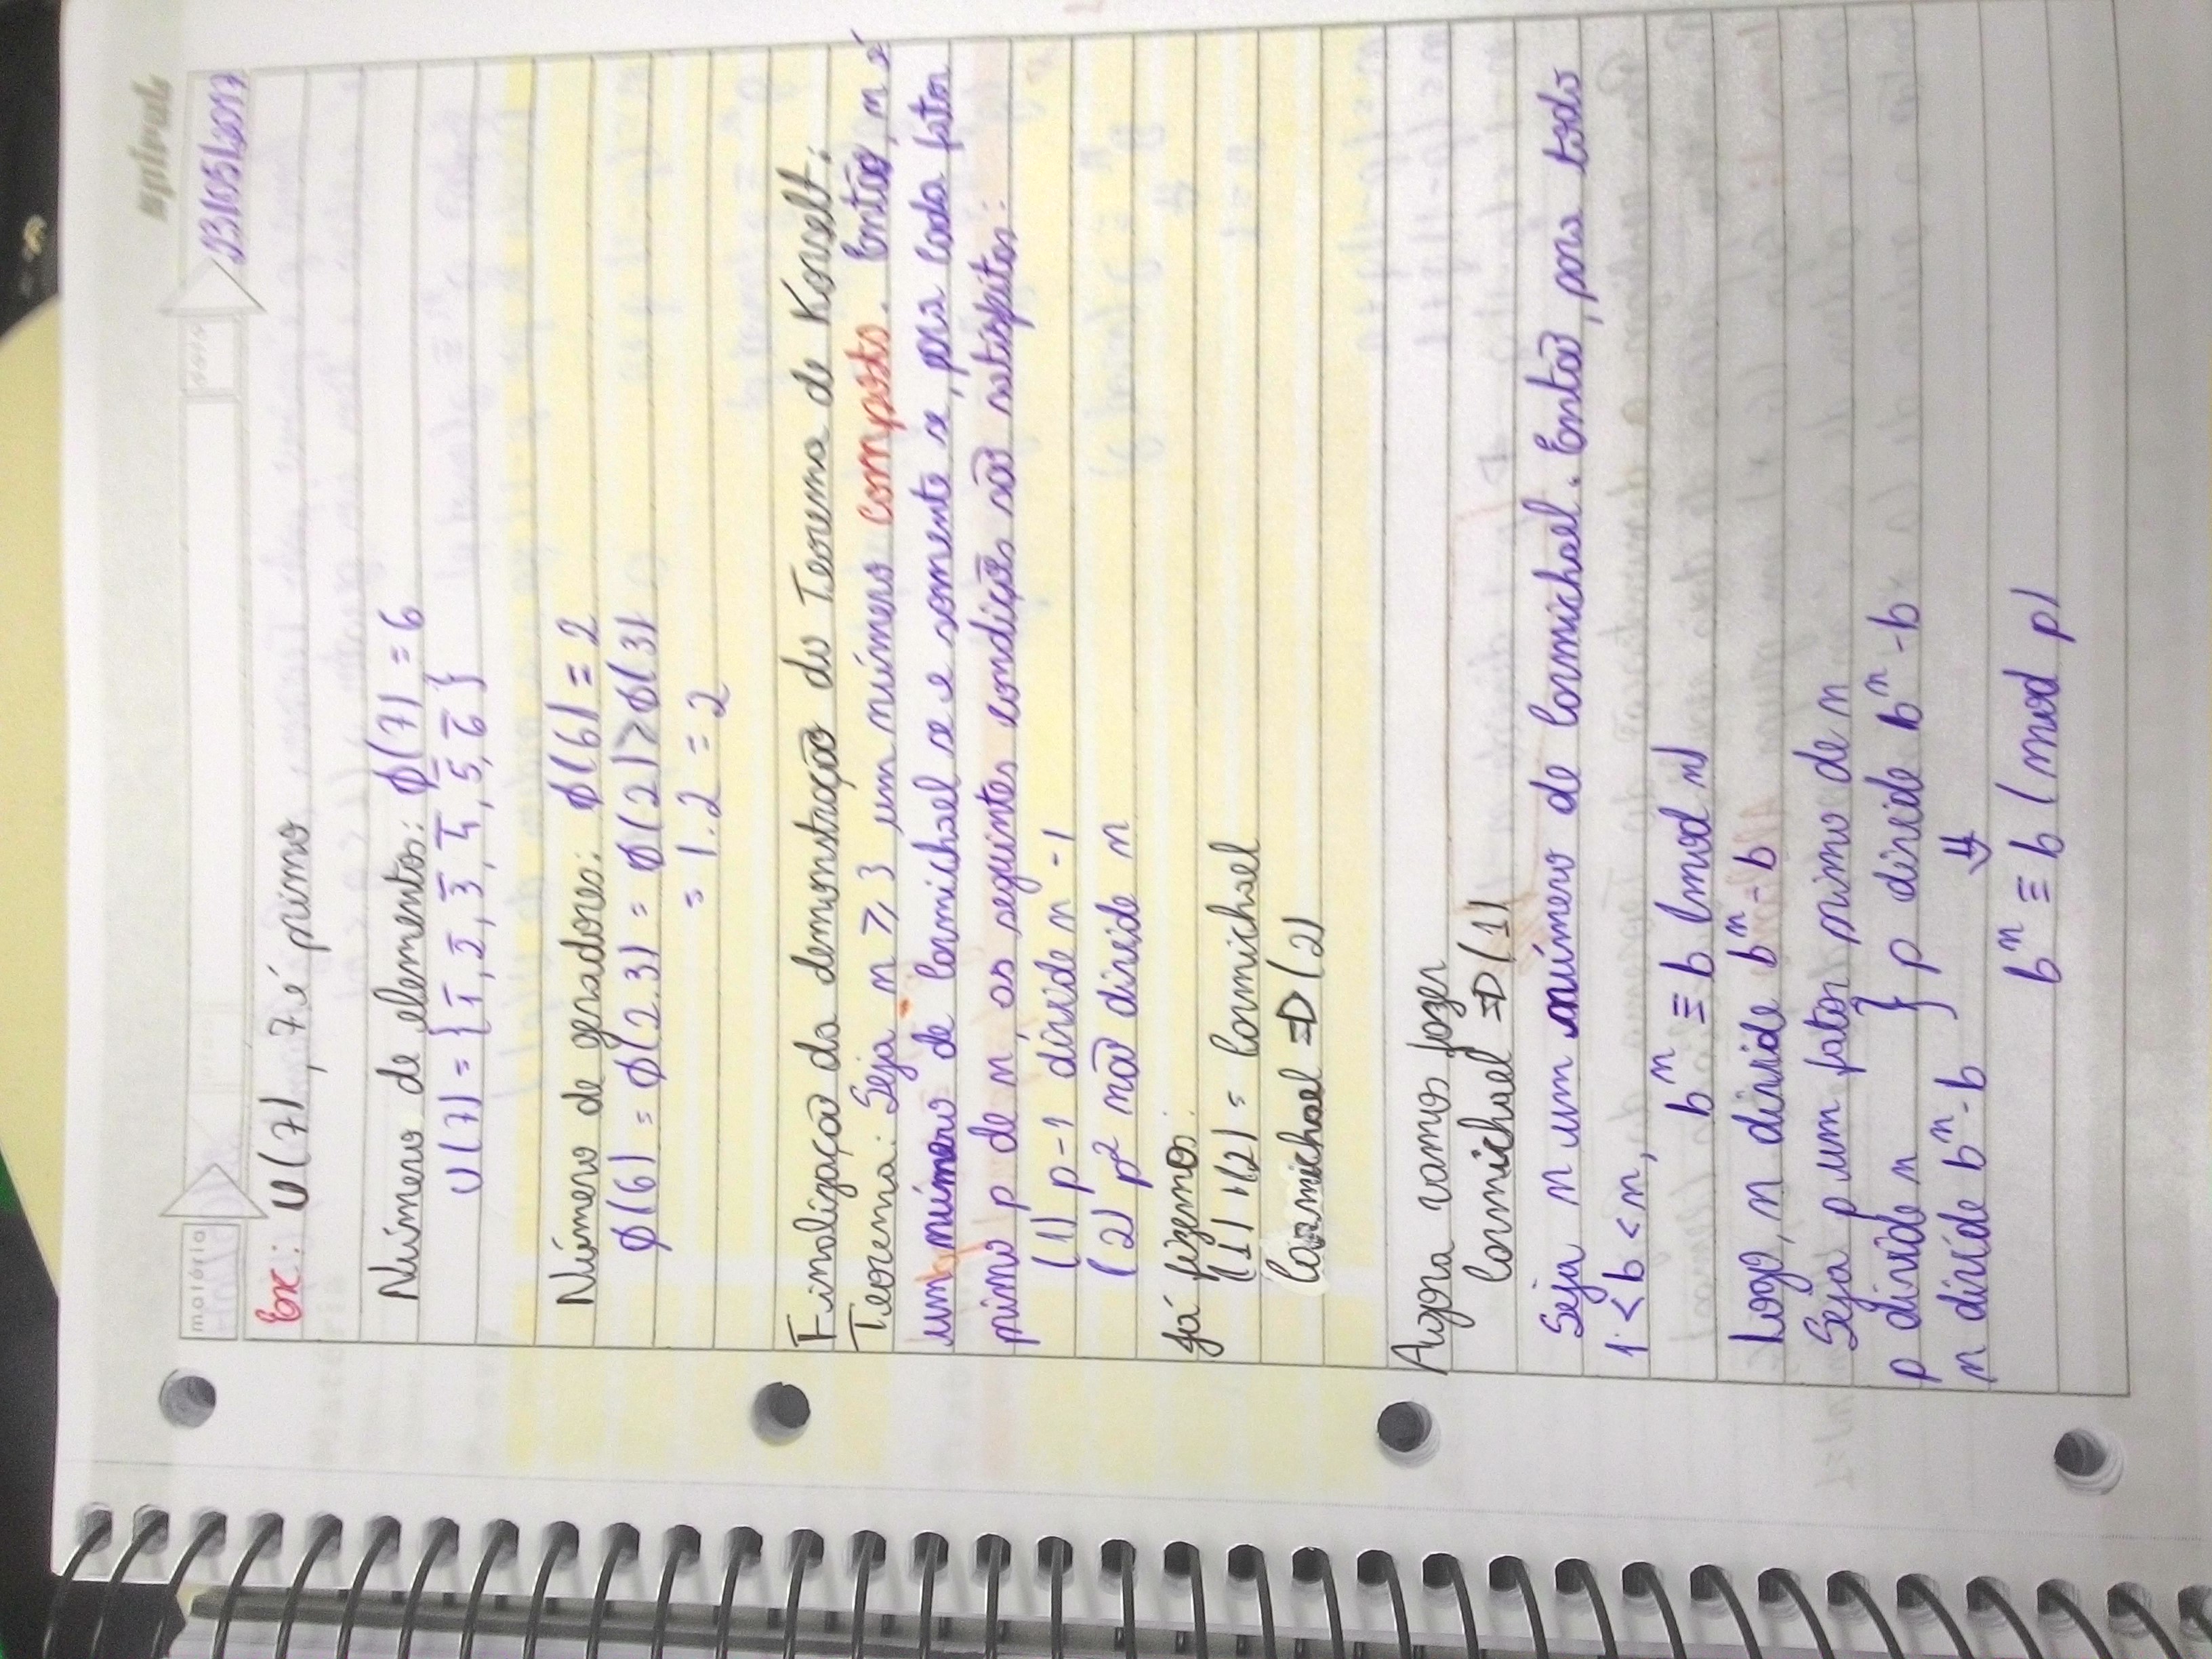 spiral
matéria
data
23/05/2017
Ex: U(7), 7 é primo
Número de elementos: φ(7) = 6
U(7) = {1̅, 2̅, 3̅, 4̅, 5̅, 6̅}
Número de geradores: φ(6) = 2
φ(6) = φ(2.3) = φ(2) φ(3)
= 1.2 = 2
Finalização da demonstração do Teorema de Korselt:
Teorema: Seja n ≥ 3 um número composto. Então, n é
um número de Carmichael se e somente se, para cada fator
primo p de n, as seguintes condições são satisfeitas:
(1) p-1 divide n-1
(2) p² não divide n
Já fizemos:
(1) (2) = Carmichael
Carmichael ⇒ (2)
Agora vamos fazer
Carmichael ⇒ (1)
Seja n um número de Carmichael. Então, para todo
1 < b < n,
bⁿ ≡ b (mod n)
Logo, n divide bⁿ - b
Seja p um fator primo de n
p divide n } p divide bⁿ - b
n divide bⁿ - b ⇓
bⁿ ≡ b (mod p)